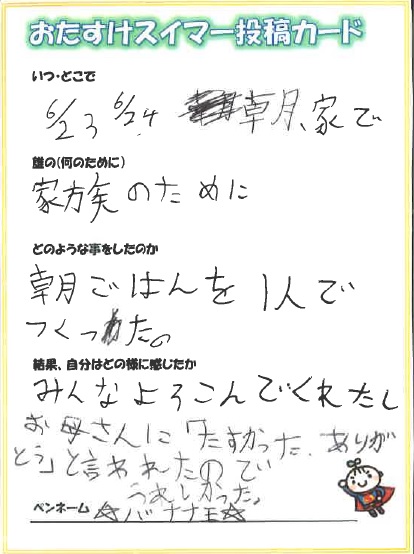 おたすけスイマー投稿カード
いつ・どこで
6/23 6/24 朝、家で
誰の(何のために)
家族のために
どのような事をしたのか
朝ごはんを1人で
つくった。
結果、自分はどの様に感じたか
みんなよろこんでくれたし
お母さんに「たすかった、ありが
とう」と言われたので
うれしかった。
ペンネーム ☆バナナモ☆